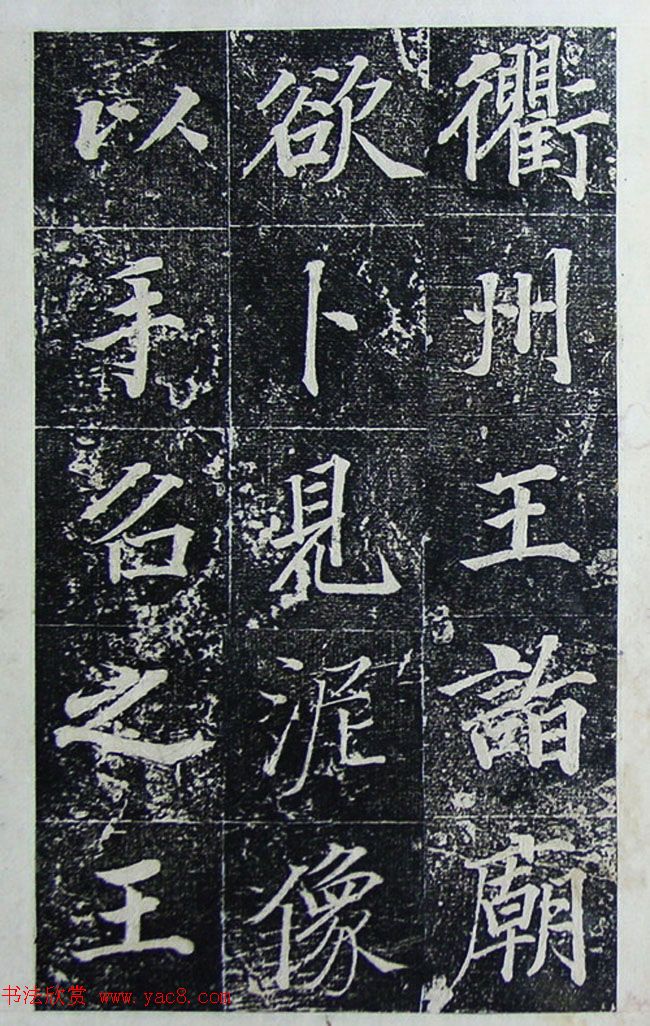 衢州王詣廟
欲卜見泥像
以手名之王
书法欣赏 www.yac8.com